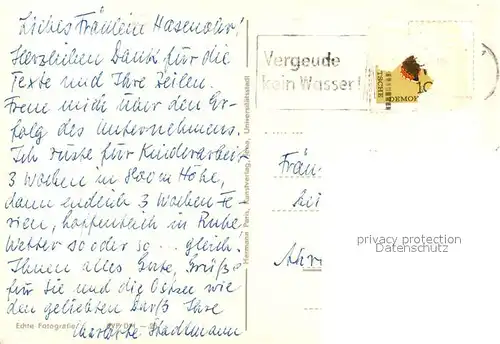 Liebes Fräulein Hasenohr!
Herzlichen Dank für die
Texte und Ihre Zeilen.
Freue mich über den Er-
folg des Unternehmens.
Ich rüste für Kinderarbeit
3 Wochen in Höhe,
dann endlich 3 Wochen Fe-
rien, hoffentlich in Ruhe.
Wetter so oder so ... gleich.
Ihnen alles Gute, Grüße
für Sie und die Ostsee wie
den geliebten Darß Ihre
Charlotte Stadtmann
Echte Fotografie
Hermann Paris, Kunstverlag, Jena, Universitätsstadt
Vergeude
kein Wasser!
10
TSCHE DEMOK
Fräu
privacy protection
Datenschutz